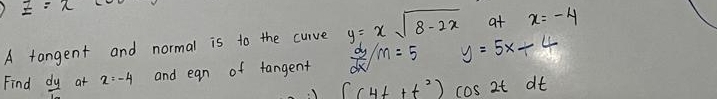 A tangent and normal is to the curve y = x √8-2x at x = -4
Find dy at x=-4 and eqn of tangent dy/dx / m = 5 y = 5x + 4
((4t + t²) cos 2t dt